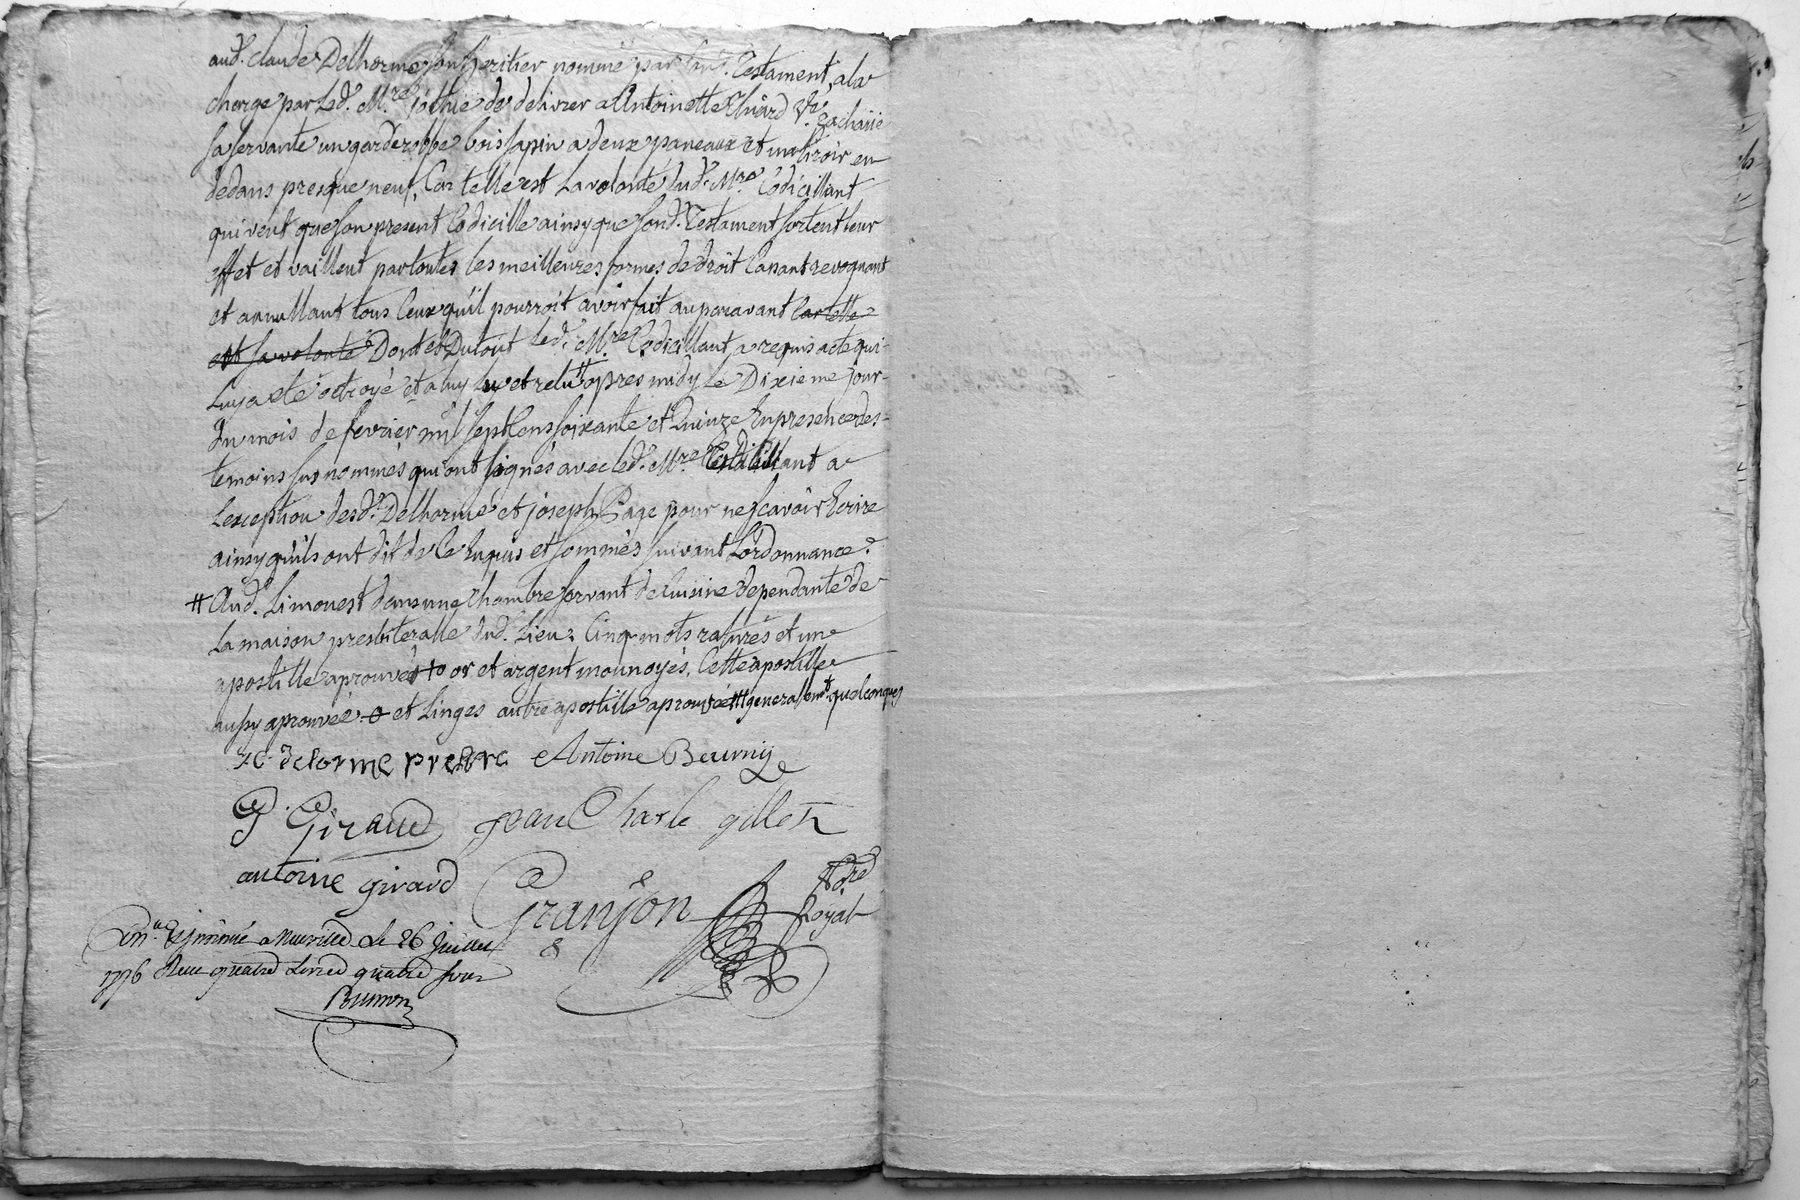 aud. claude Delhorme son heritier nommé par sud. Testament, a la
charge par led. Mre jothie de delivrer a Antoinette Vve Zacharie
sa servante un garderobbe bois sapin a deux paneaux et un tiroir en
dedans presque neuf, Car telle est la volonté dud. Mre Codicillant
qui veut que son present Codicille ainsy que sond. Testament sortent leur
effet et vaillent par toutes les meilleures formes de droit Cassant revoquant
et annullant tous Ceux qu'il pourroit avoir fait auparavant Car telle
est sa volonté Dont et Dutout led. Mre Codicillant a requis acte qui
luy a eté octroyé et a luy lu et relu # apres midy le Dixieme jour
du mois de fevrier mil sept Cens soixante et Quinze En presence des
temoins sus nommés qui ont signés avec led. Mre Codicillant a
L'exception desd. Delhorme et joseph Page pour ne scavoir Ecrire
ainsy qu'ils ont dit de ce Enquis et sommés suivant L'ordonnance.
# Aud. Limonest dans une Chambre servant de Cuisine dependante de
La maison presbiteralle dud. Lieu; Cinq mots raturés et une
apostille aprouvés to or et argent monnoyés, Cette apostille
aussy aprouvée o et Linges autre apostille aprouvée ## generallemt quelconques
delorme prestre Antoine Beurnig
P. Giraud jean Charle gillet
antoine girard Granjon Nore Royal
Con.lé Ejnimé a Neuville Le 26 Juillet
1776 Reçu quatre Livres quatre sous
Brunon